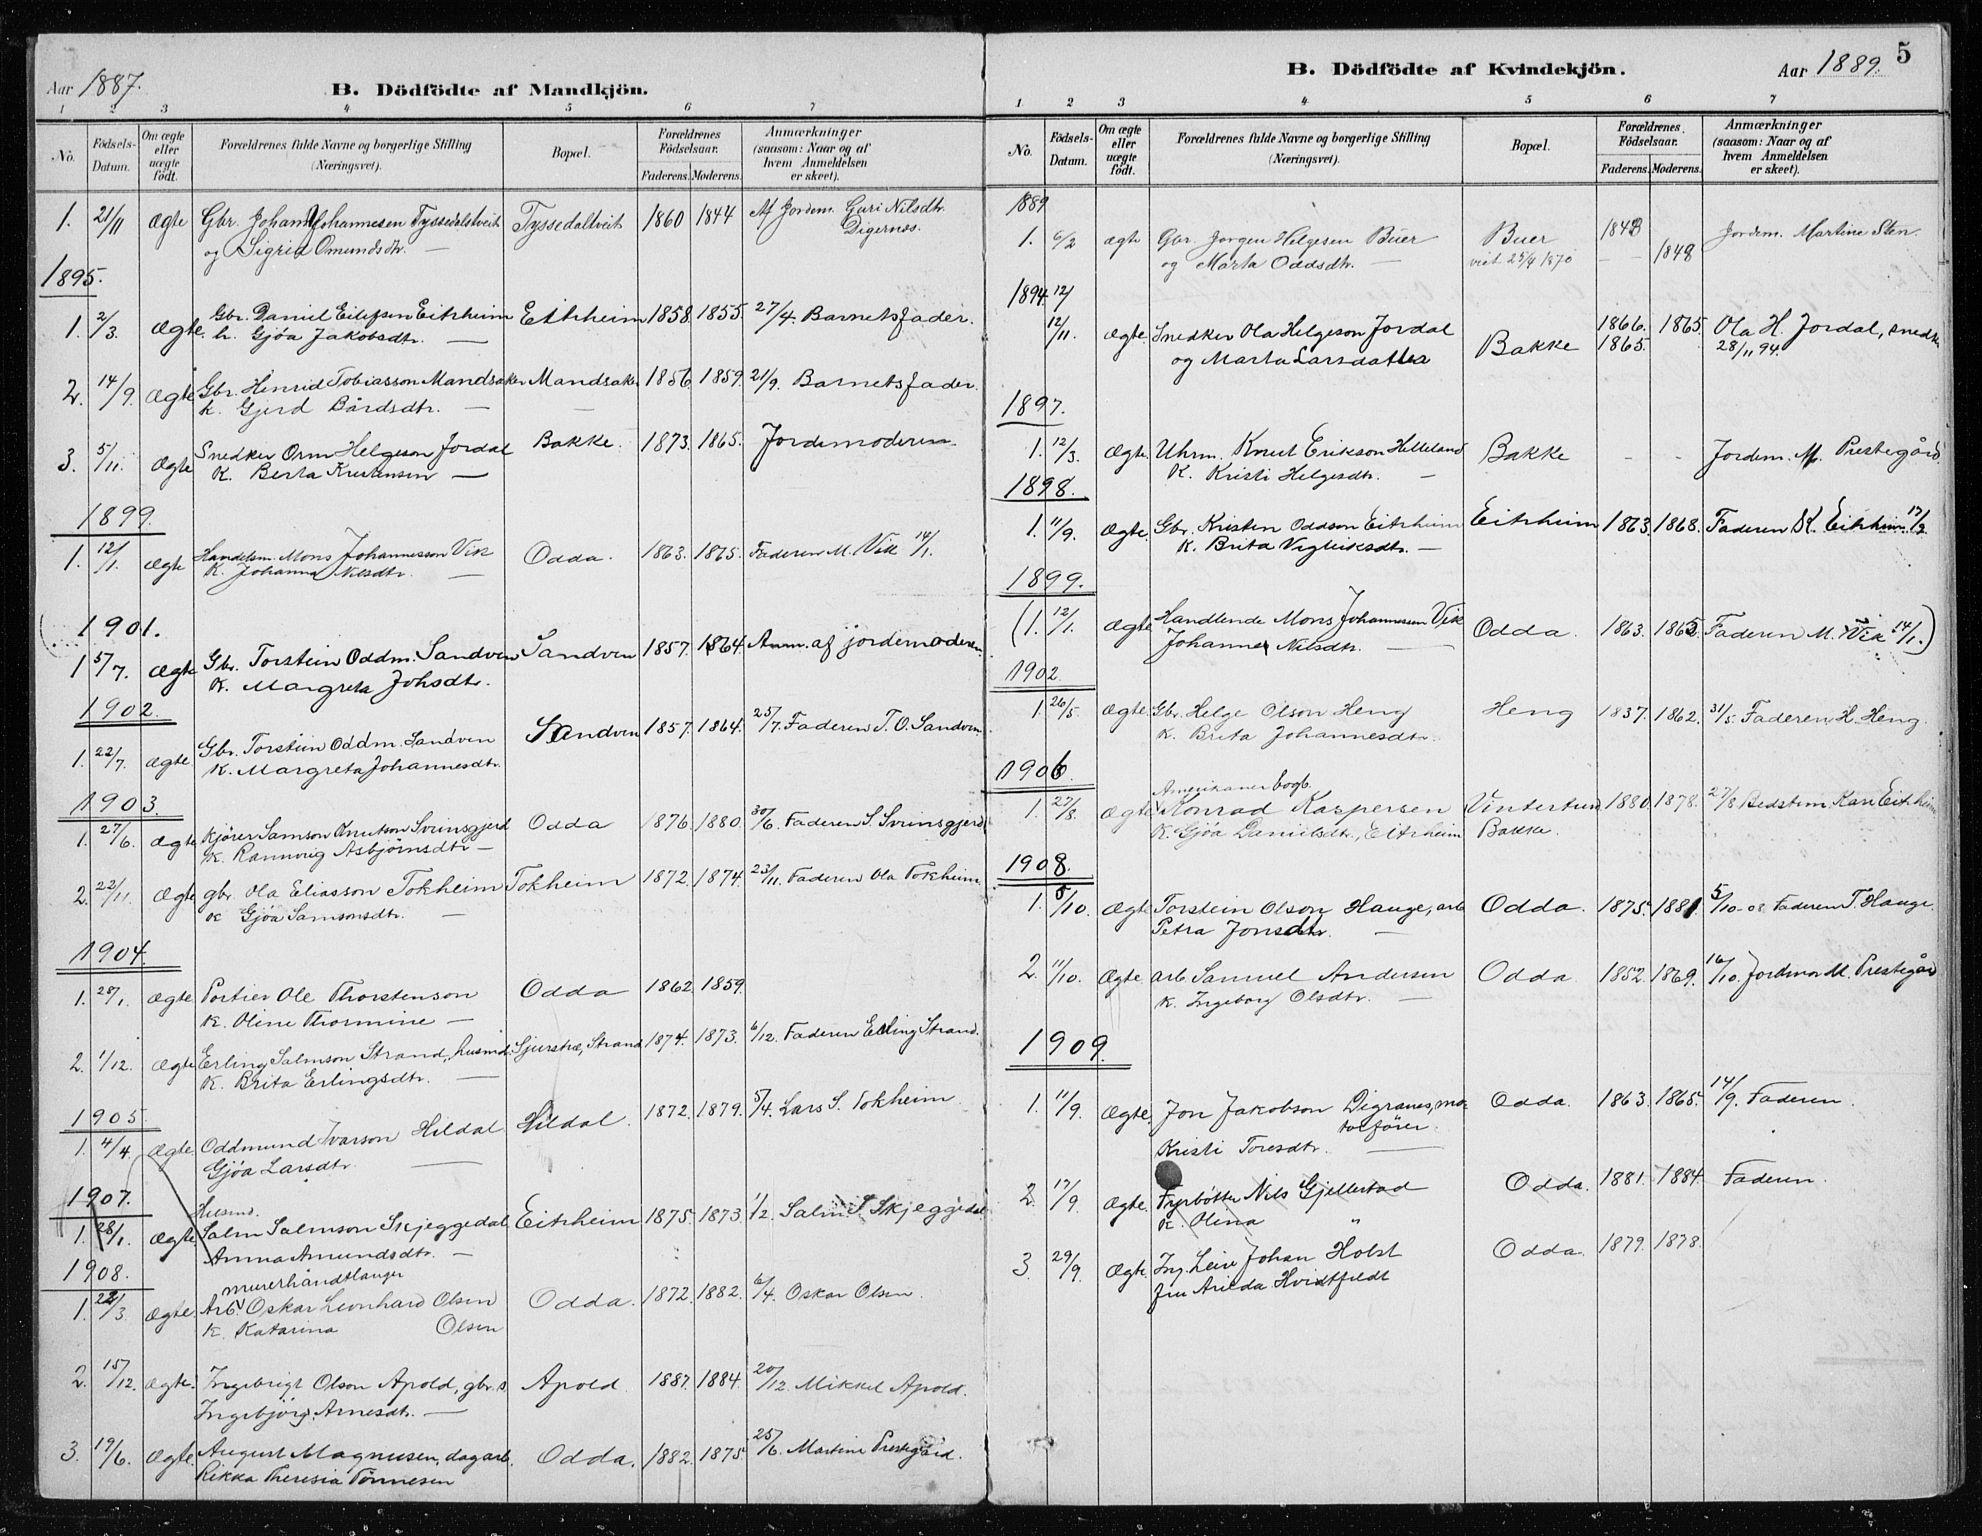 Aar 1887.
B. Dödfödte af Mandkjön.
1 2 3 4 5 6 7
No. Födsels-Datum. Om ægte eller uægte födt. Forældrenes fulde Navne og borgerlige Stilling (Næringsvei). Bopæl. Forældrenes Födselsaar. Faderens. Moderens. Anmærkninger (saasom: Naar og af hvem Anmeldelsen er skeet).
1. 21/11 Ægte Gbr. Johans Johannesen Tyssedalstveit Tyssedaltveit 1860 1844 Af Jordem. Guri Nilsdtr. Digernæs.
og Sigrid Omundsdtr. —
1895.
1. 2/3. Ægte. Gbr. Daniel Eilefsen Eitrheim Eitrheim 1858. 1855. 27/4. Barnets fader.
h. Gjøa Jakobsdtr. —
2. 14/9. Ægte Gbr. Henrid Tobiasson Mandsaker Mandsaker 1856. 1859. 21/9. Barnets fader.
k. Gjerd Bårdsdtr. —
3. 5/11. Ægte Snedker Orm Helgeson Jordal Bakke. 1873. 1865. Jordemoderen
K. Berta Kristensen —
1899.
1. 12/1. Ægte Handelsm. Mons Johannesson Vik Odda. 1863. 1865. Faderen M. Vik 14/1.
K. Johanna Nilsdtr. —
1901.
1 5/7. Ægte Gbr. Torstein Oddm. Sandven Sandven 1857. 1864. Anm. af jordemoderen
K. Margreta Johsdtr.
1902.
1. 22/7. Ægte Gbr. Torstein Oddm. Sandven Sandven 1857. 1864. 25/7. Faderen T. O. Sandven
K. Margreta Johannesdtr.
1903.
1. 27/6. Ægte Kjører Samson Knutson Svinsgjerd Odda 1876. 1880. 30/6. Faderen S. Svinsgjerd
K. Rannveig Asbjørnsdtr. —
2. 22/11. Ægte gbr. Ola Eliasson Tokheim Tokheim 1872. 1874. 23/11. Faderen Ola Tokheim.
K Gjøa Samsonsdtr. —
1904.
1. 28/1. Ægte Portier Ole Thorstenson Odda 1862. 1859.
K. Oline Thormine —
2. 1/12. Ægte Erling Salmson Strand, husmd. Sjurstræ, Strand 1874. 1873. 6/12. Faderen Erling Strand.
K. Brita Erlingsdtr. —
1905
1. 4/4. Ægte. Oddmund Ivarson Hildal Hildal. 1872. 1879. 5/4. Lars S. Tokheim
Gjøa Larsdtr. —
1907.
Husmd.
1. 28/1. Ægte. Salm Salmson Skjeggedal Eitrheim 1875. 1873. 1/2. Salm S. Skjeggedal
Anna Amundsdtr. —
1908.
murerhåndtlanger
1. 22/3. Ægte. Arb. Oskar Leonhard Olsen Odda. 1872. 1882. 6/4. Oskar Olsen.
K. Katarina Olsen
2. 15/12. Ægte. Ingebrigt Olson Apold, gbr. s. Apold. 1887. 1884. 20/12. Mikkel Apold.
Ingebjørg Arnesdtr. —
3. 19/6. Ægte. August Magnusen, dagarb. Odda. 1882. 1875. 25/6. Martine Prestegård.
Rikka Theresia Tønnesen
B. Dödfödte af Kvindekjön. Aar 1889. 5
1 2 3 4 5 6 7
No. Födsels-Datum. Om ægte eller uægte födt. Forældrenes fulde Navne og borgerlige Stilling (Næringsvei). Bopæl. Forældrenes Födselsaar. Faderens. Moderens. Anmærkninger (saasom: Naar og af hvem Anmeldelsen er skeet).
1889
1. 6/2 ægte Gbr. Jørgen Helgesen Buer Buer 1843 Jordem. Martine Sten.
og Marta Oddsdtr. — viet 25/4 1870 — 1848
1894. 12/
12/11. Ægte. Snedker Ola Helgeson Jordal Bakke 1866. 1865. 1865. Ola H. Jordal, snedk.
og Marta Larsdatter 28/11 94.
1897.
1. 12/3. Ægte. Uhrm. Knut Erikson Helleland Bakke - - Jordem. M. Prestegård.
K. Kristi Helgesdtr. —
1898.
1. 11/9. Ægte. Gbr. Kristen Oddson Eitrheim Eitrheim 1863. 1868. Faderen K. Eitrheim.
K. Brita Vigleiksdtr. —
1899.
(1. 12/1. Ægte Handlende Mons Johannesen Vik Odda. 1863. 1865 Faderen M. Vik 14/1.)
Johanne Nilsdtr. —
1902.
1. 26/5. Ægte. Gbr. Helge Olson Heng Heng 1837. 1862. 31/5. Faderen H. Heng.
K. Brita Johannesdtr.
1906.
Amerikaner
1. 27/8. Ægte Konrad Kaspersen Vintertun 1880. 1878. 27/8 Bedstem. Kari Eitrheim
K. Gjøa Danielsdtr., Eitrheim Bakke.
1908.
1. 5/10. Ægte Torstein Olson Hauge, arb Odda. 1875. 1881. 5/10-08. Faderen T. Hauge
Petra Jonsdtr. —
2. 11/10. Ægte. arb Samuel Andersen Odda 1852. 1869. 16/10. Jordmor M. Prestegård
K. Ingeborg Olsdtr. —
1909.
1. 11/9. Ægte. Jon Jakobson Digranes, mo- Odda. 1863. 1865. 14/9. Faderen.
torfører.
Kristi Toresdtr. —
2. 17/9. Ægte. Fyrbøtter Nils Gjellestad Odda. 1881. 1884. Faderen.
K. Olina "
3. 29/9. Ægte Ing. Leiv Johan Holst Odda. 1879. 1878.
fru Arilda Hvidtfeldt